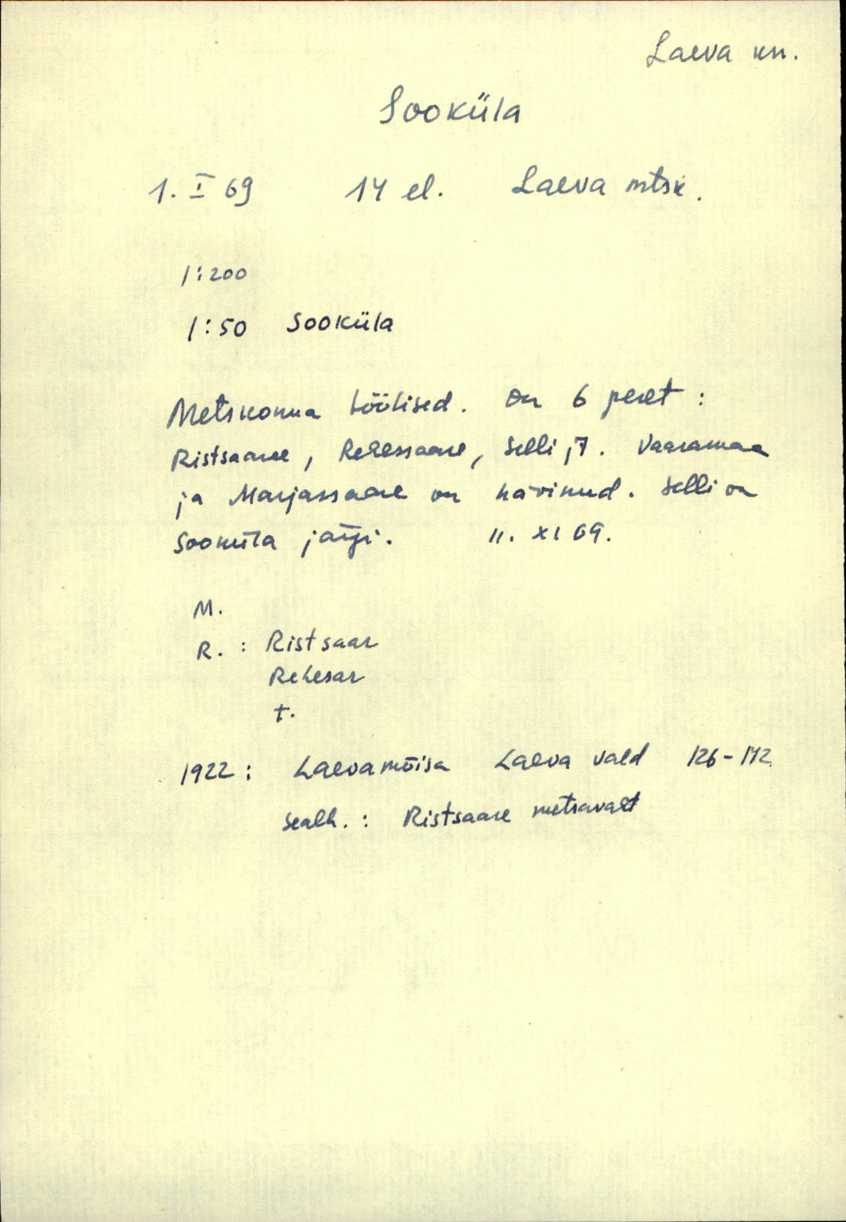 Laeva kn.
Sooküla
1. I 69 14 el. Laeva mtsk.
1:200
1:50 Sooküla
Metskonna töölised. On 6 peret:
Ristsaare, Rehessaare, Selli j7. Vaaramaa
ja Marjassaare on hävinud. Selli on
Sooküla järgi. 11. XI 69.
M.
R.: Ristsaar
Rehesar
t.
1922: Laevamõisa Laeva vald 126-172
sealh.: Ristsaare metsavaht